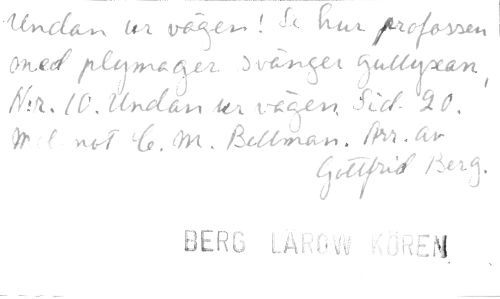 Undan ur vägen! Se hur profossen
med plymager svänger gullyxan,
N:r. 10. Undan ur vägen. Sid. 20.
Mel. not C. M. Bellman. Arr. av
Gottfrid Berg.
BERG LÄROW KÖREN